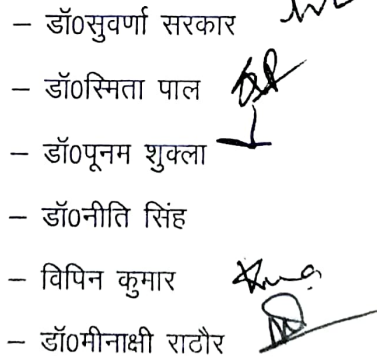 – डॉ0सुवर्णा सरकार
– डॉ0स्मिता पाल
– डॉ0पूनम शुक्ला
– डॉ0नीति सिंह
– विपिन कुमार
– डॉ0मीनाक्षी राठौर